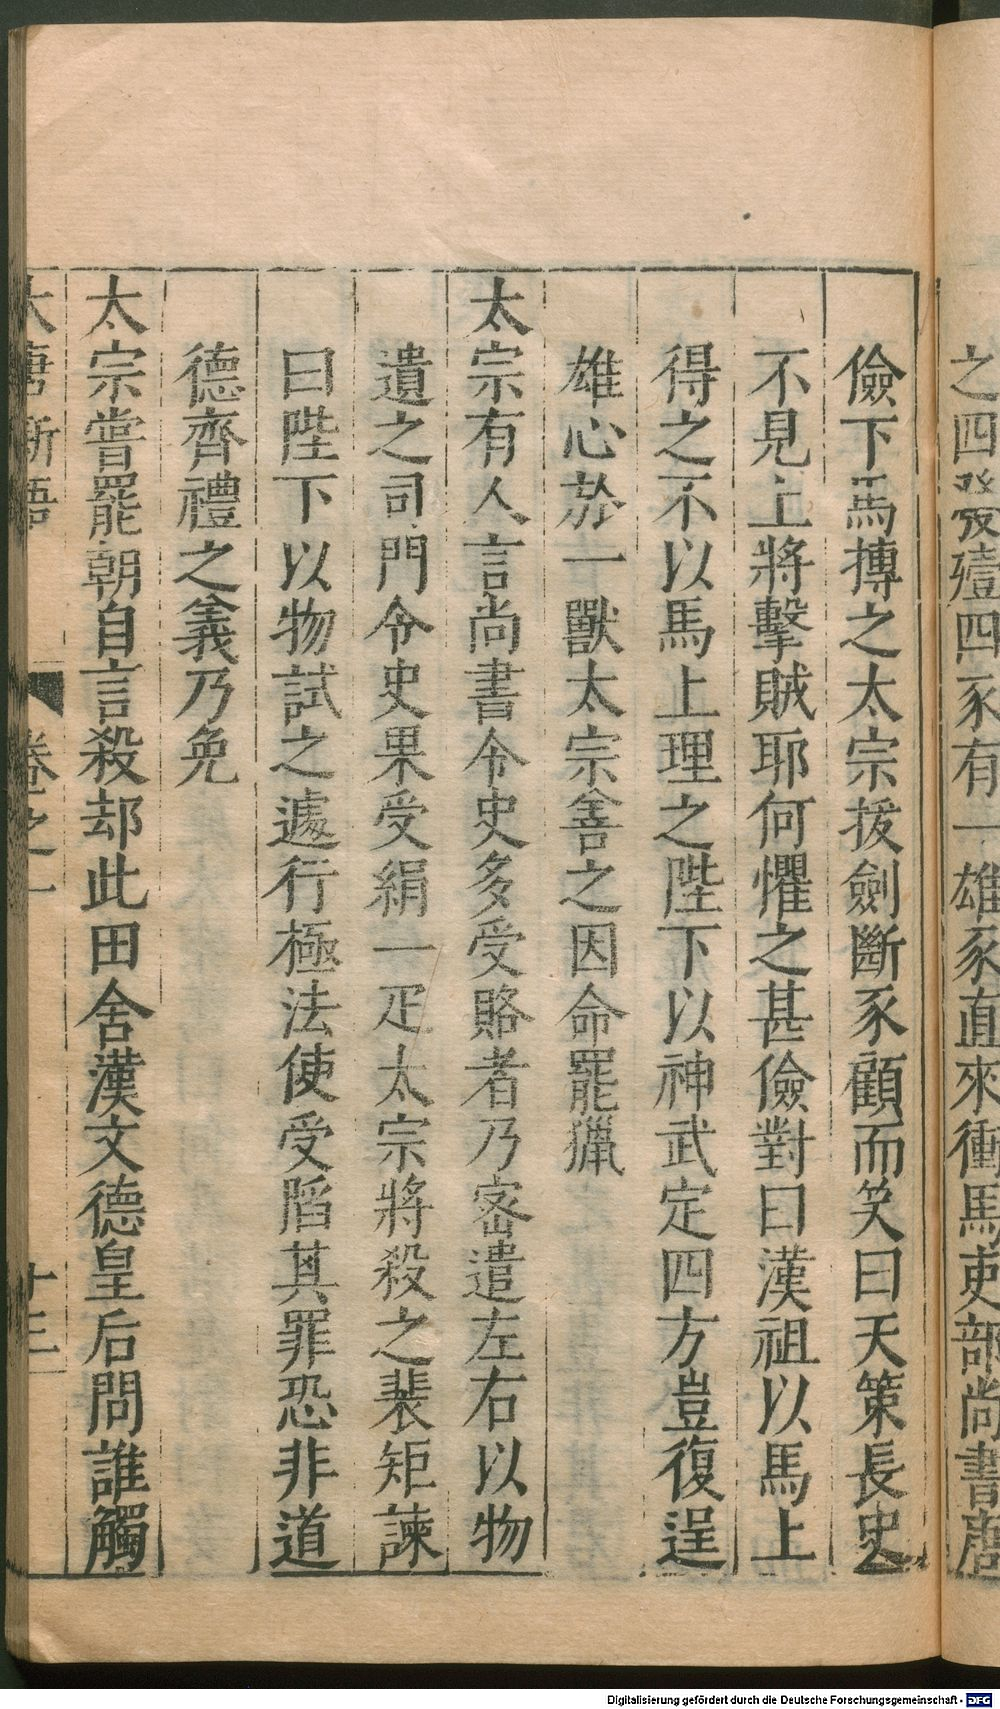 之四發殪四豕有一雄豕直來衝馬吏部尚書唐
儉下馬摶之太宗拔劍斷豕顧而笑曰天策長史
不見上將擊賊耶何懼之甚儉對曰漢祖以馬上
得之不以馬上理之陛下以神武定四方豈復逞
雄心於一獸太宗善之因命罷獵
太宗有人言尚書令史多受賂者乃密遣左右以物
遺之司門令史果受絹一疋太宗將殺之裴矩諫
曰陛下以物試之遽行極法使受陷其罪恐非道
德齊禮之義乃免
太宗嘗罷朝自言殺却此田舍漢文德皇后問誰觸
大唐新語 卷之一 十三
Digitalisierung gefördert durch die Deutsche Forschungsgemeinschaft - DFG